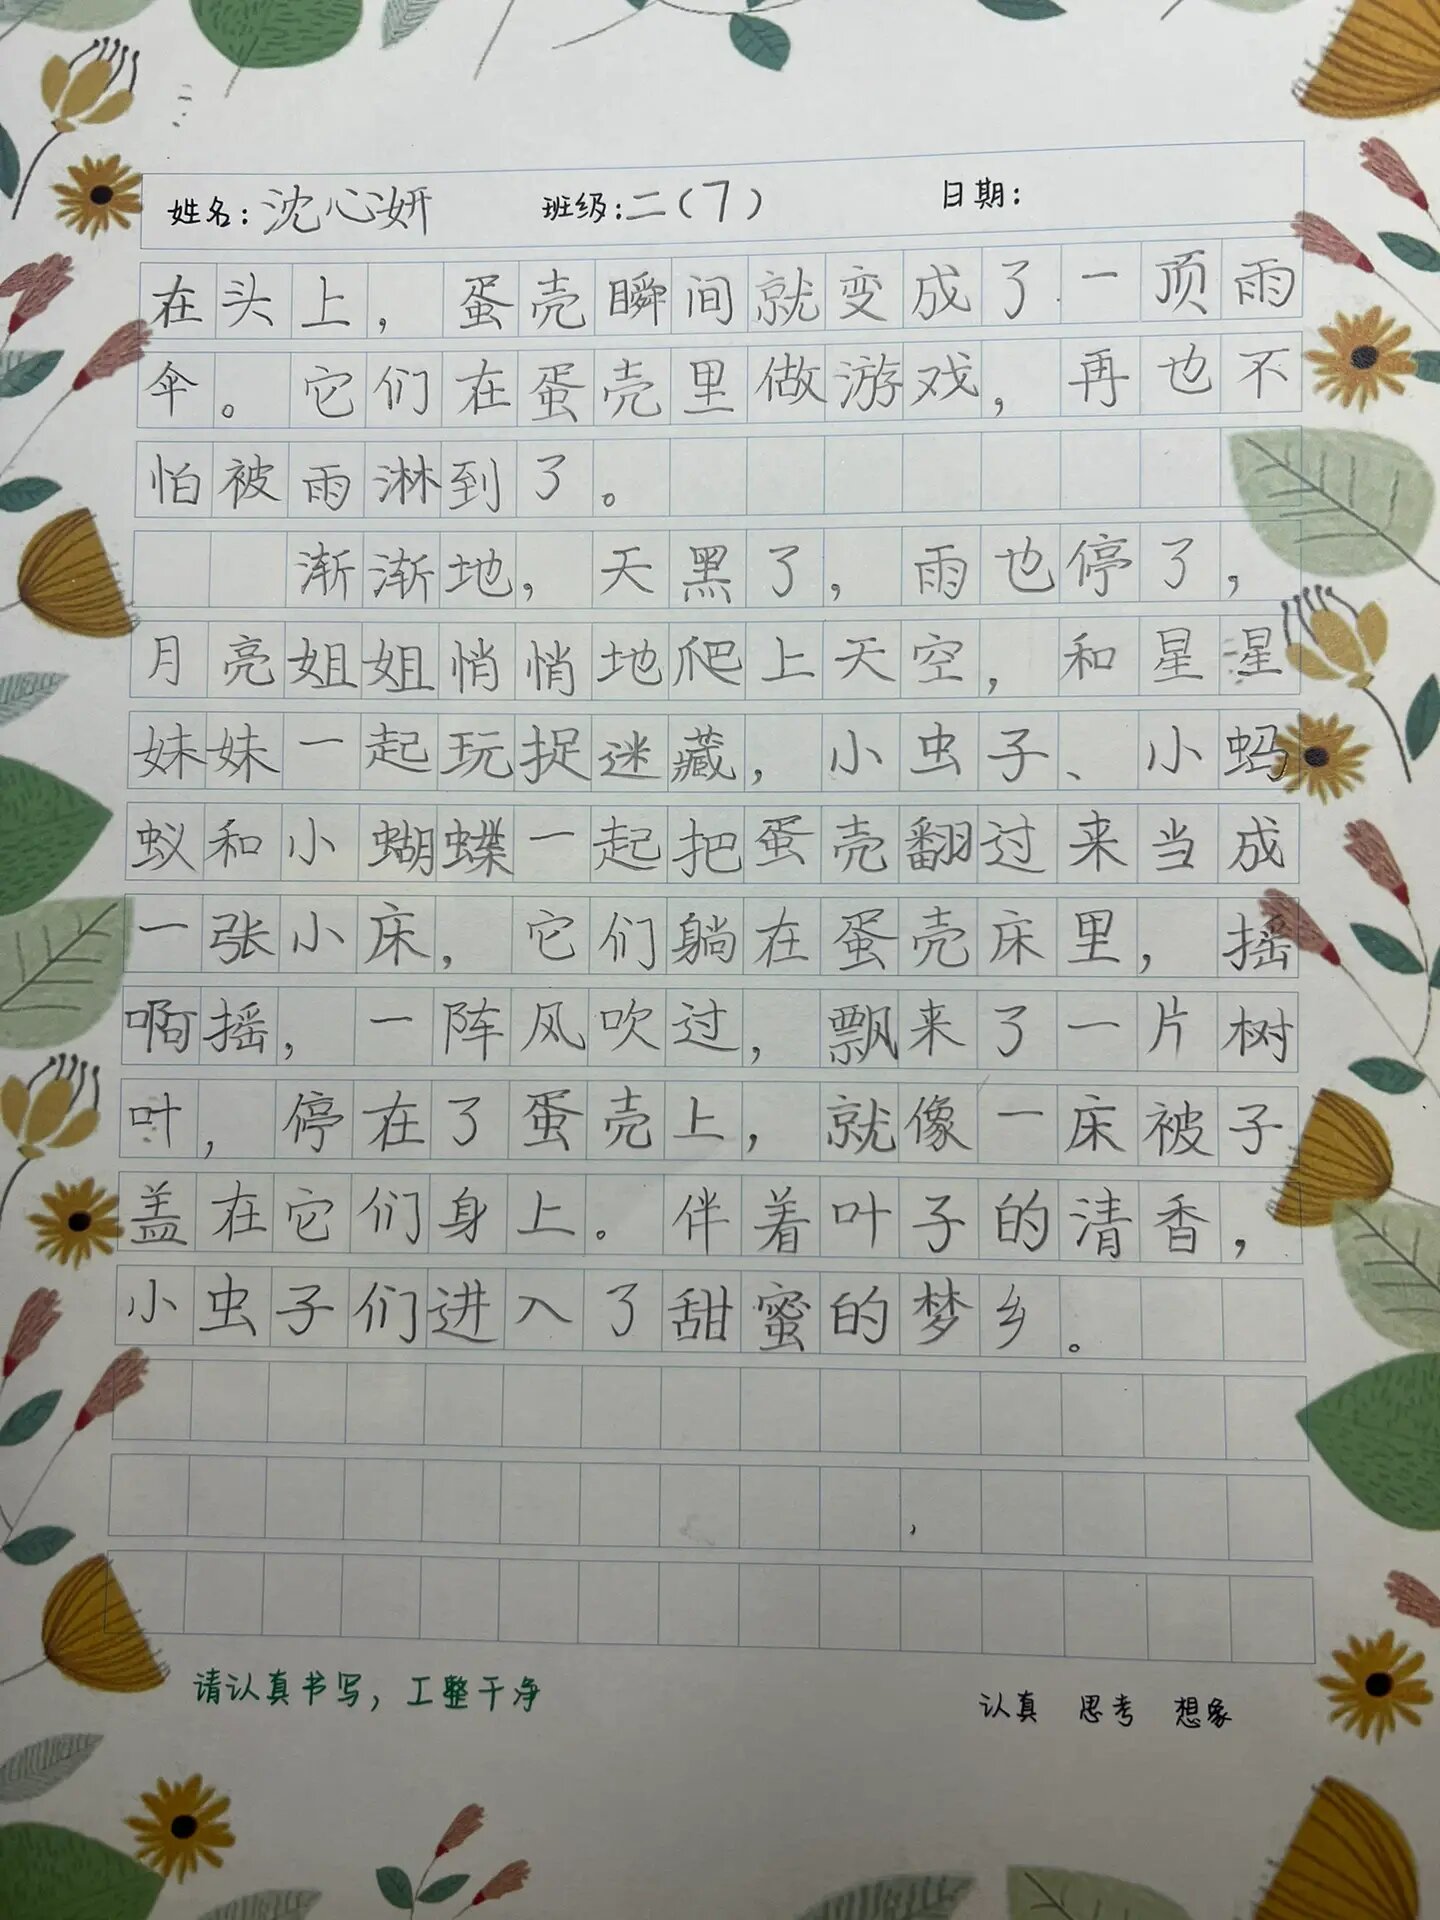 姓名:沈心妍 班级:二(7) 日期:
在头上,蛋壳瞬间就变成了一顶雨
伞。它们在蛋壳里做游戏,再也不
怕被雨淋到了。
渐渐地,天黑了,雨也停了,
月亮姐姐悄悄地爬上天空,和星星
妹妹一起玩捉迷藏,小虫子、小蚂
蚁和小蝴蝶一起把蛋壳翻过来当成
一张小床,它们躺在蛋壳床里,摇
啊摇,一阵风吹过,飘来了一片树
叶,停在了蛋壳上,就像一床被子
盖在它们身上。伴着叶子的清香,
小虫子们进入了甜蜜的梦乡。
请认真书写,工整干净 认真 思考 想象